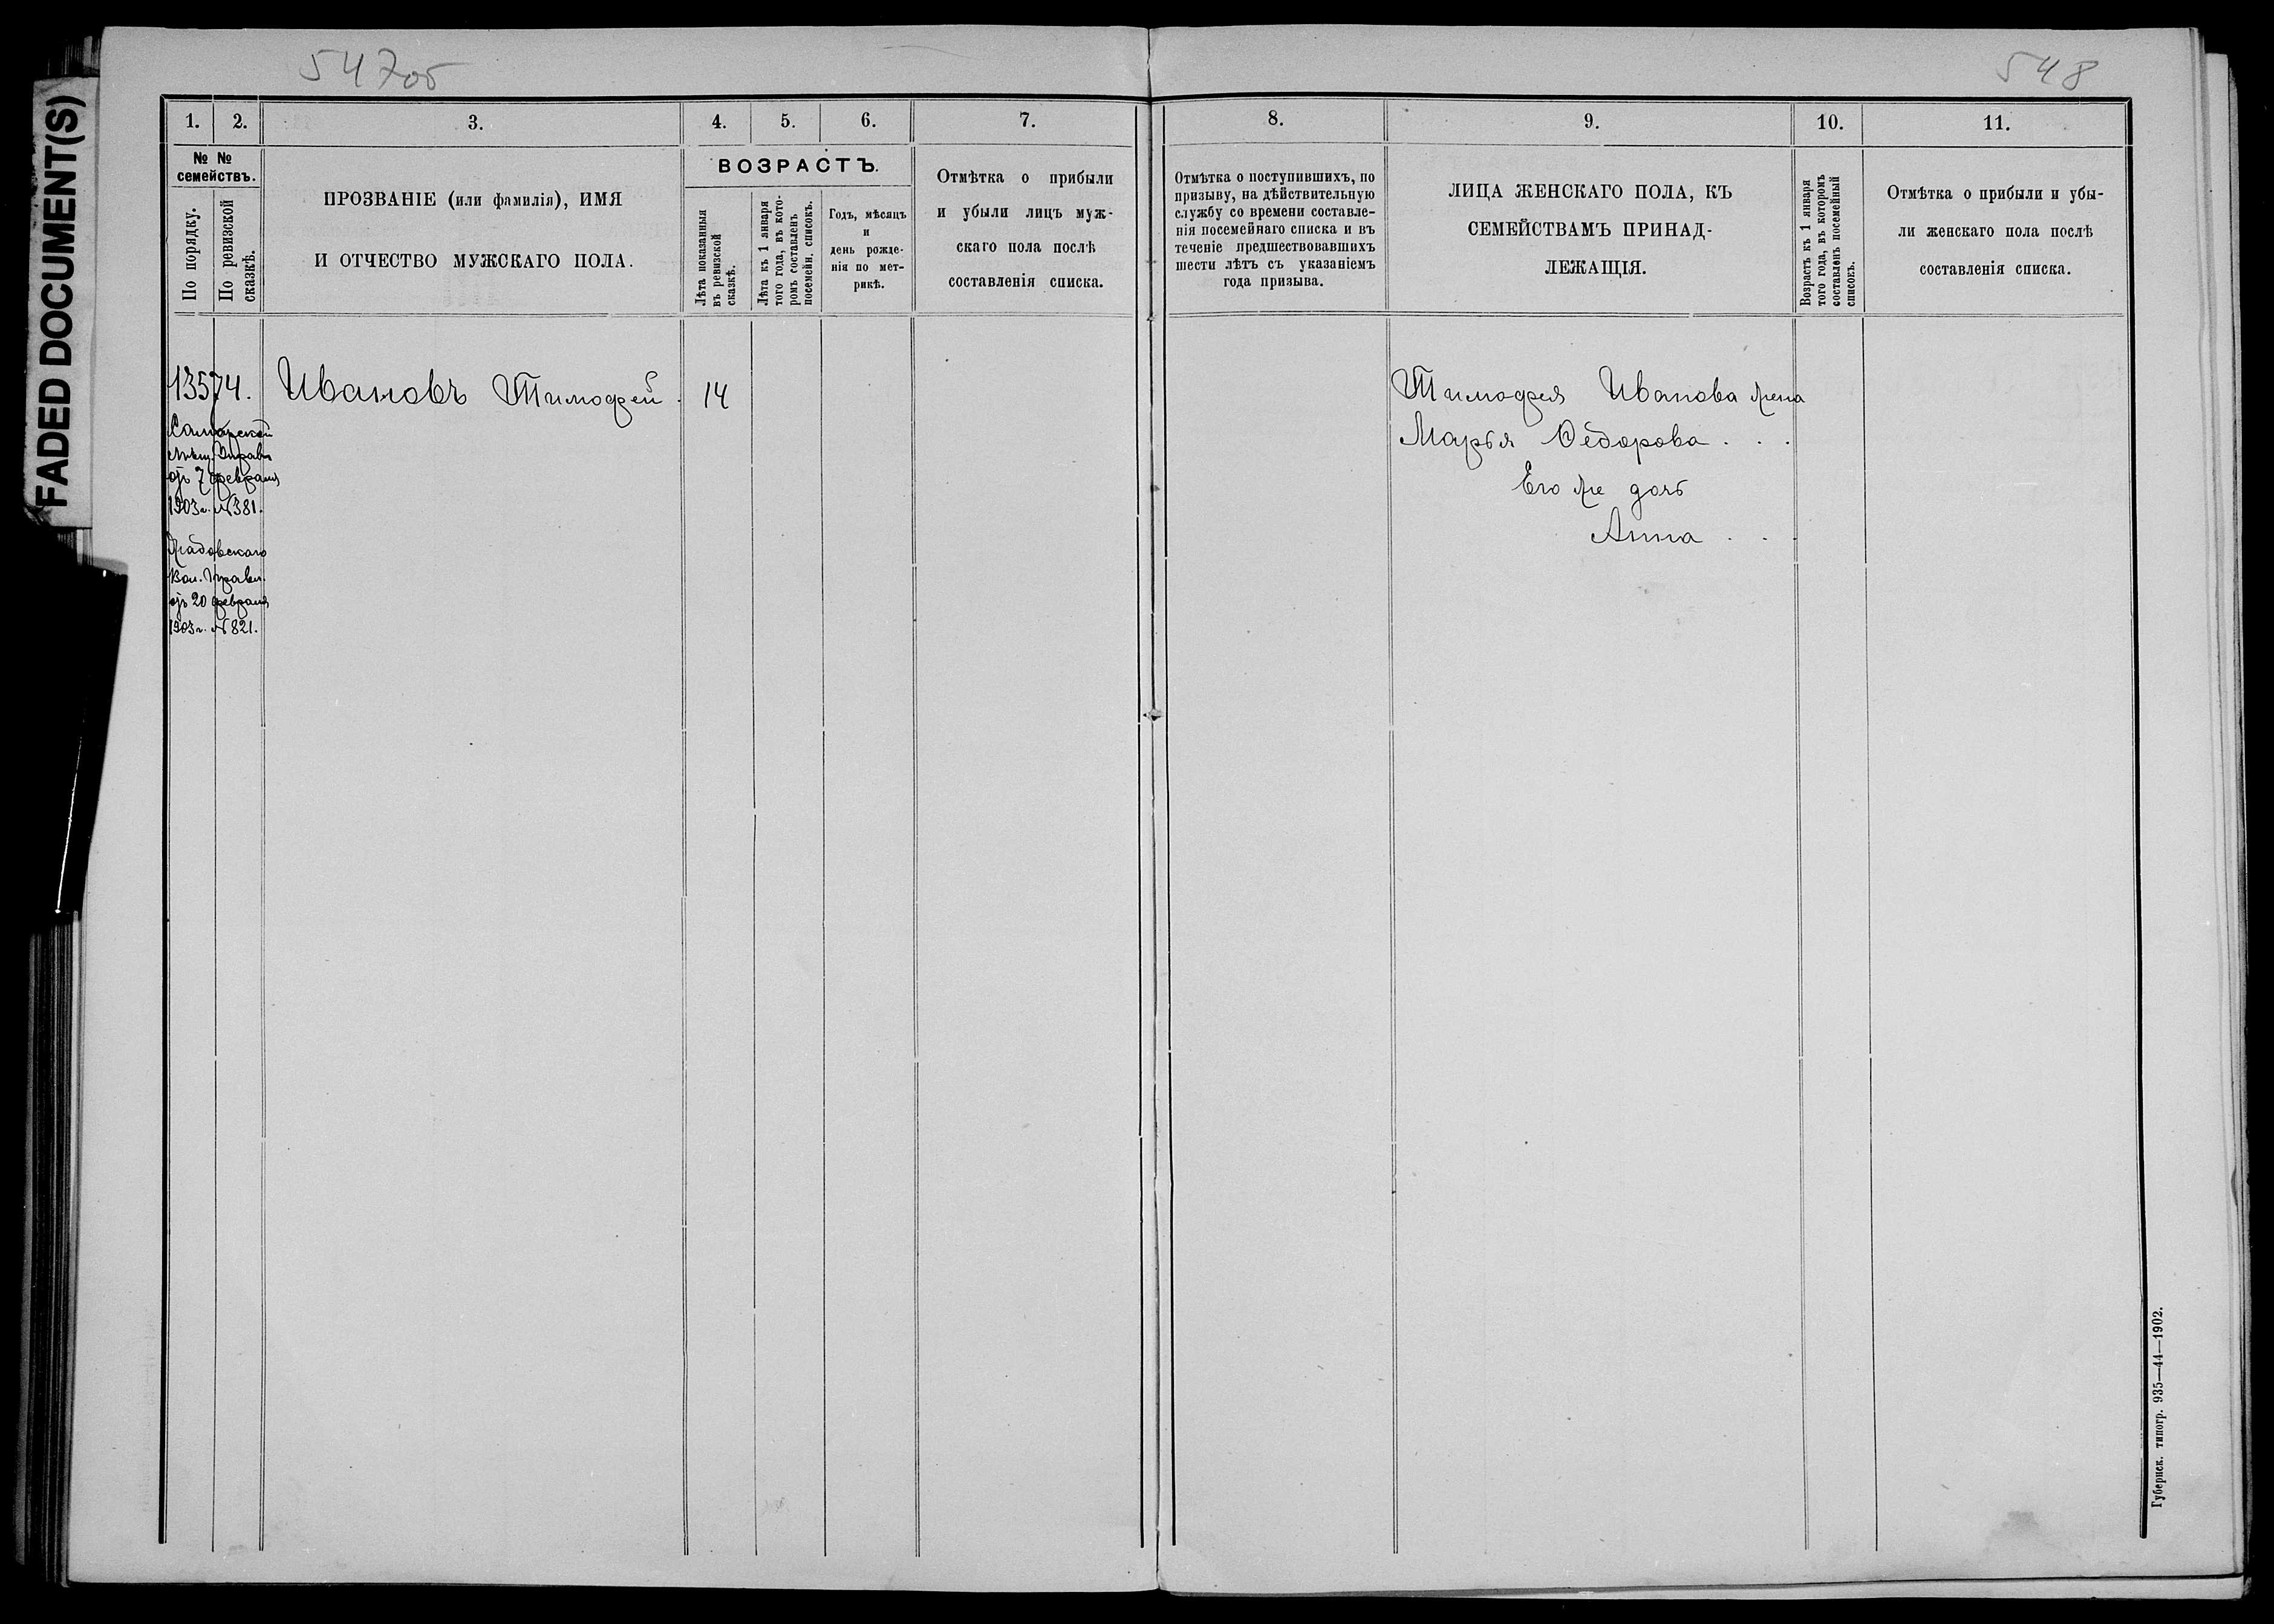 FADED DOCUMENT(S)
547об
548
1. 2. 3. 4. 5. 6. 7.
№ № семействъ.
По порядку.
По ревизской сказкѣ.
ПРОЗВАНІЕ (или фамилія), ИМЯ
И ОТЧЕСТВО МУЖСКАГО ПОЛА.
ВОЗРАСТЪ.
Лѣта показанныя
въ ревизской
сказкѣ.
Лѣта къ 1 января
того года, въ кото-
ромъ составленъ
посемейн. списокъ.
Годъ, мѣсяцъ
и
день рожде-
нія по мет-
рикѣ.
Отмѣтка о прибыли
и убыли лицъ муж-
скаго пола послѣ
составленія списка.
13574.
Ивановъ Тимофей
14
Самарской
Мѣщ. Управы
отъ 7 февраля
1903 г. №381.
Вол. Правл.
отъ 20 февраля
1903 г. №821.
8. 9. 10. 11.
Отмѣтка о поступившихъ, по
призыву, на дѣйствительную
службу со времени составле-
нія посемейнаго списка и въ
теченіе предшествовавшихъ
шести лѣтъ съ указаніемъ
года призыва.
ЛИЦА ЖЕНСКАГО ПОЛА, КЪ
СЕМЕЙСТВАМЪ ПРИНАД-
ЛЕЖАЩІЯ.
Возрастъ къ 1 января
того года, въ которомъ
составленъ посемейный
списокъ.
Отмѣтка о прибыли и убы-
ли женскаго пола послѣ
составленія списка.
Тимофея Иванова жена
Марья Ѳедорова . . .
Его же дочь
Анна . . .
Губернск. типогр. 935—44—1902.